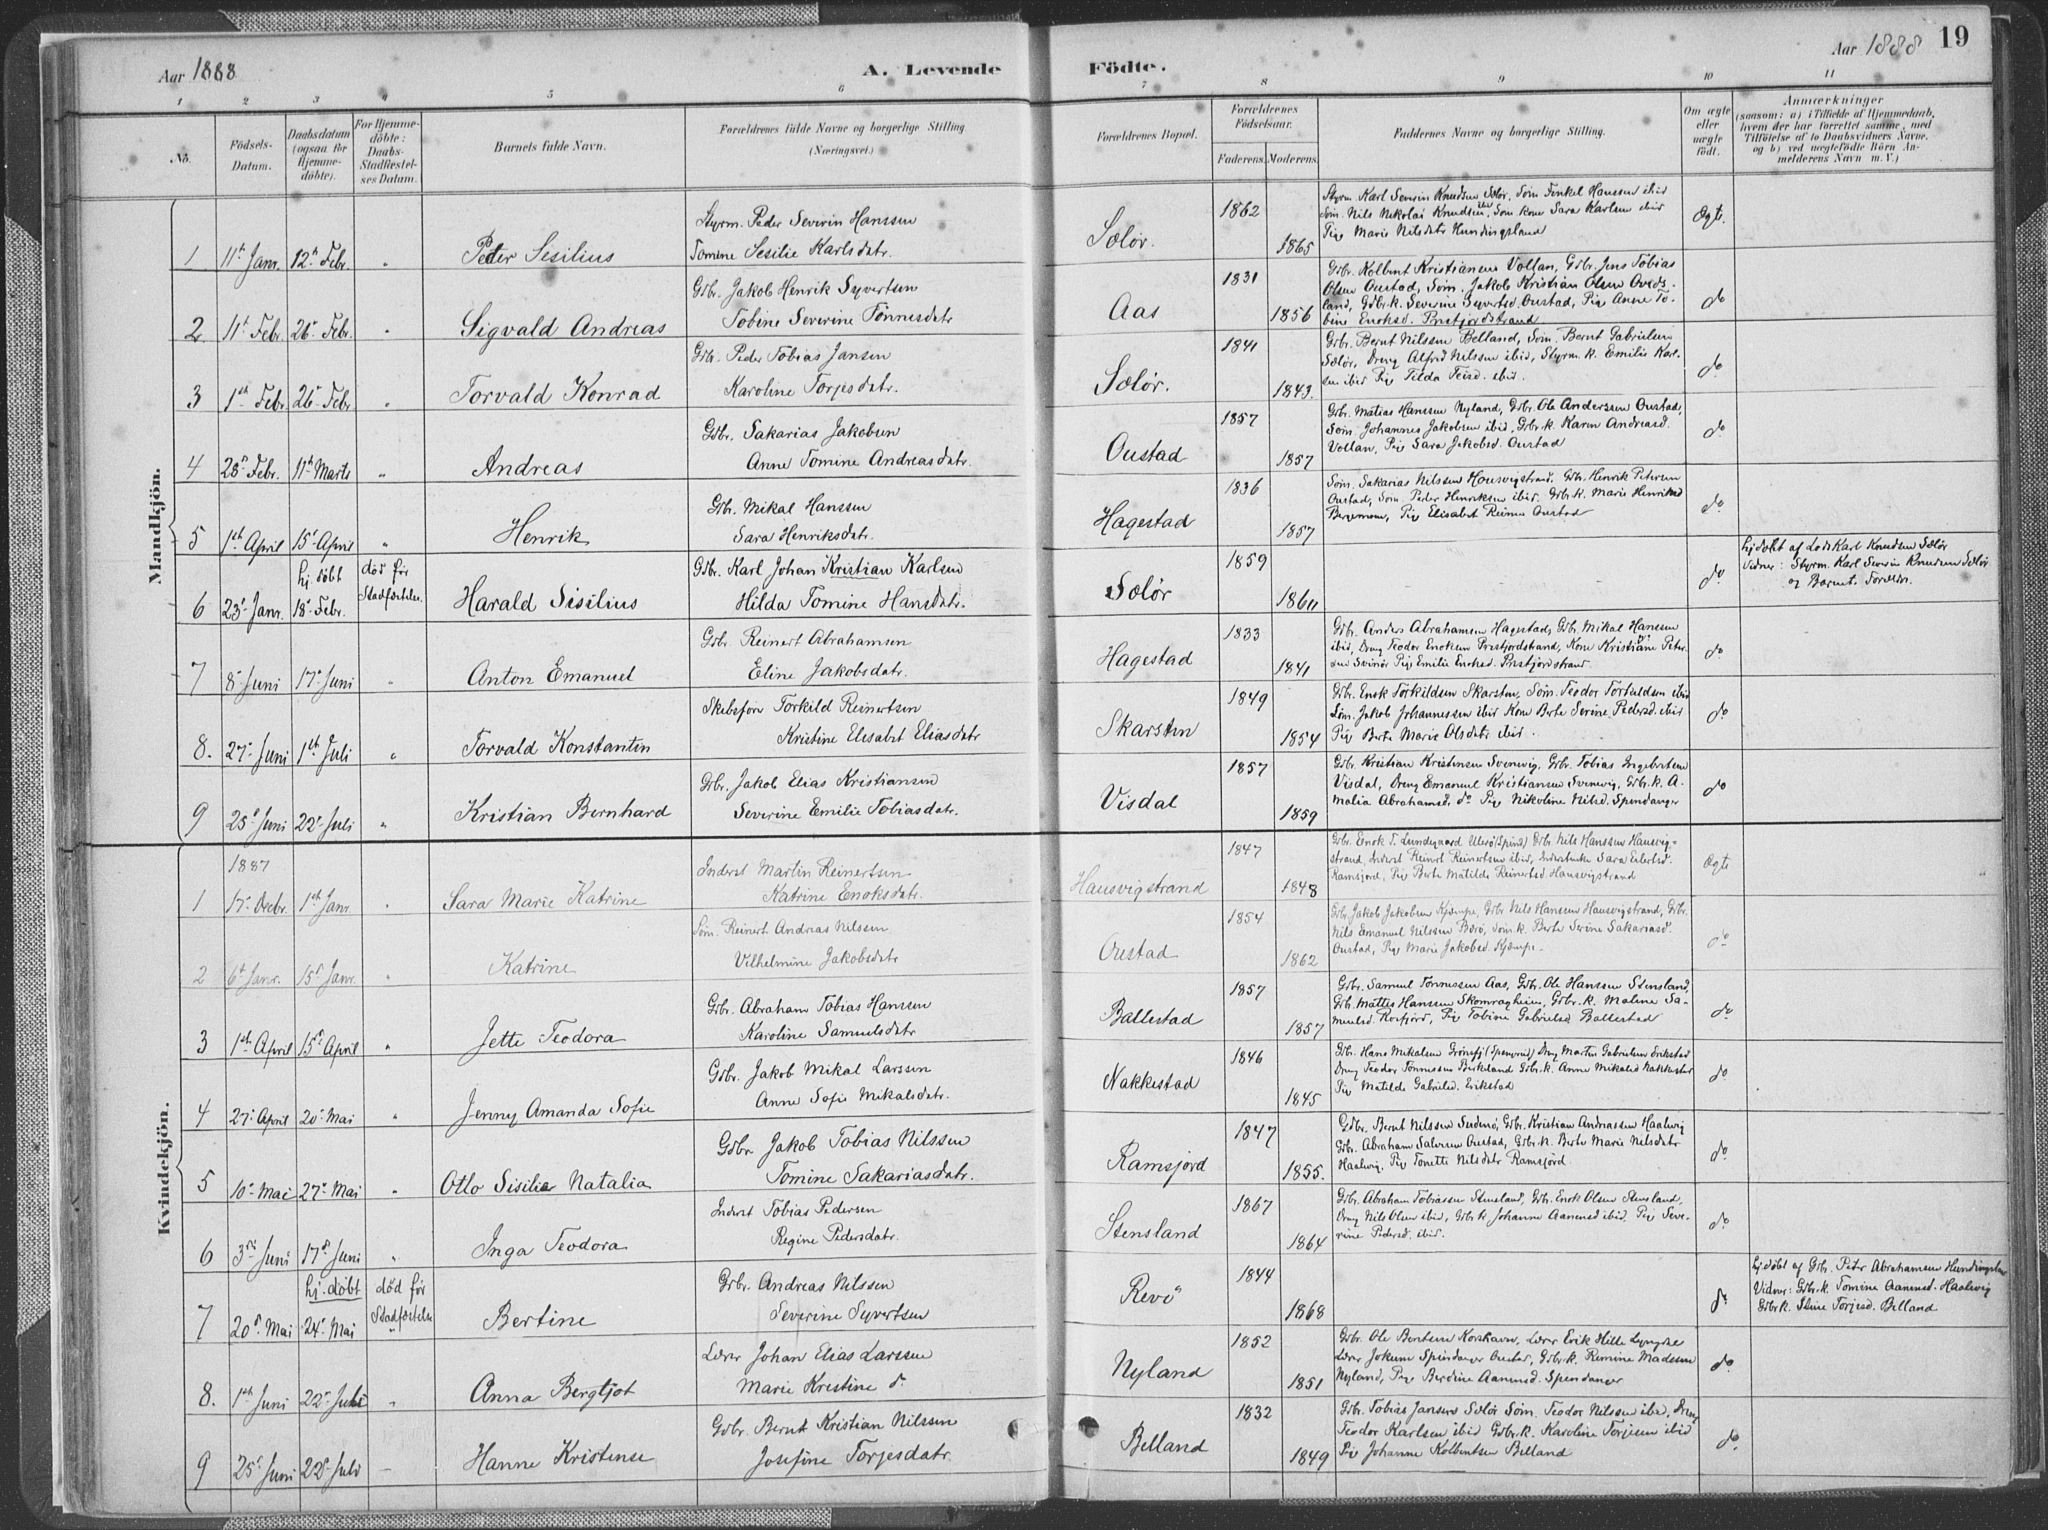 Aar 1888
A. Levende
Födte.
Aar 1888
19
1 2 3 4 5 6 7 8 9 10 11
No.
Födsels-Datum.
Daabsdatum (ogsaa for Hjemme-döbte).
For Hjemme-döbte: Daabs-Stadfæstel-ses Datum.
Barnets fulde Navn.
Forældrenes fulde Navne og borgerlige Stilling. (Næringsvei.)
Forældrenes Bopæl.
Forældrenes Födselsaar.
Faderens. Moderens.
Faddernes Navne og borgerlige Stilling.
Om ægte eller uægte födt.
Anmærkninger
(saasom: a) i Tilfælde af Hjemmedaab,
hvem der har forrettet samme, med
Tilföielse af to Daabsvidners Navne,
og b) ved uægtefödte Börn An-
melderens Navn m. V.)
Mandkjön.
1 11te Janr. 12te Febr. " Peter Sesilius
Styrm. Peder Severin Hanssen
Tomine Sesilie Karlsdatr.
Sælør. 1862 1865
Styrm. Karl Severin Knudsen Sælør, Søm. Tenkel Hanssen ibid
Søm. Nils Nikolai Knudsen ibid, Søm. kone Sara Karlsen ibid
Pige Marie Nilsdatr Hundingsland
Ægt.
2 11te Febr. 26de Febr. " Sigvald Andreas
Gbr. Jakob Henrik Syvertsen
Tobine Severine Tønnesdatr
Aas 1831 1856
Gbr. Kolbent Kristiansen Vollan, Gbr. Jens Tobias
Olsen Oustad, Søm. Jakob Kristian Olsen Oveds-
land, Gbr.k. Severine Syvertsd. Oustad, Pige Anne To-
bine Enoksd. Prestfjordstrand
do
3 1ste Febr. 26de Febr. " Torvald Konrad
Gbr. Peder Tobias Jansen
Karoline Torjesdatr.
Sælør. 1841 1843.
Gbr. Bernt Nilssen Belland, Søm. Bernt Gabrielsen
Sælør, Dreng Alfred Nilssen ibid, Styrm. k. Emilie Karl-
sen ibid Pige Tilda Teisd. ibid.
do
4 28de Febr. 11te Marts " Andreas
Gbr. Sakarias Jakobsen
Anne Tomine Andreasdatr.
Oustad 1857 1857
Gbr. Matias Hanssen Nyland, Gbr. Ole Anderssen Oustad,
Søm. Johannes Jakobsen ibid, Gbr.k. Karen Andreasd.
Vollan, Pige Sara Jakobsd. Oustad
do
5 1ste April 15de April " Henrik
Gbr. Mikal Hanssen
Sara Henriksdatr.
Hagestad 1836 1857
Søm. Sakarias Nilssen Hausvigstrand, Gbr. Henrik Petersen
Oustad, Søm. Peder Henriksen ibid. Gbr.k. Marie Henriksd
Pige Elisabet Reiners Oustad
do
6 23de Janr. hj. döbt 18de Febr. död før Stadfæstelse. Harald Sisilius
Gbr. Karl Johan Kristian Karlsen
Hilda Tomine Hansdatr.
Sælør 1859
do
hj. döbt af Lods Karl Knudsen Sælør
Vidner: Styrm. Karl Severin Knudsen Sælør
og Barnets Foreldre.
7 8de Juni 17de Juni " Anton Emanuel
Gbr. Reinert Abrahamsen
Eline Jakobsdatr.
Hagestad 1833 1841
Gbr. Anders Abrahamsen Hagestad, Gbr. Mikal Hanssen
ibid, Dreng Teodor Enoksen Prestfjordstrand, Kone Kristiane Peter-
sen Svinør Pige Emilie Enoksd. Prestfjordstrand.
do
8. 27de Juni 1ste Juli " Torvald Konstantin
Skibsfører Torkild Reinertsen
Kristine Elisabet Eliasdatr
Skarsten 1849 1854
Gbr. Enok Torkildsen Skarsten, Søm. Teodor Torkildsen ibid
Søm. Jakob Johannessen ibid Kone Berte Serine Pedersd. ibid
Pige Berte Marie Olsdatr ibid.
do
9 25de Juni 22de Juli " Kristian Bernhard
Gbr. Jakob Elias Kristiansen
Severine Emilie Tobiasdatr.
Visdal 1857 1859
Gbr. Kristian Kristensen Svenevig, Gbr. Tobias Ingebretsen
Visdal, Dreng Emanuel Kristiansen Svenevig, Gbr.k. A-
malia Abrahamsd. do Pige Nikoline Nilsd. Spendanger
do
Kvindekjön.
1 1887 17de Decbr. 1ste Janr. " Sara Marie Katrine
Inderst Martin Reinertsen
Katrine Enoksdatr.
Hausvigstrand 1847 1848
Gbr. Enok T. Lundegaard Ullerö (Spind) Gbr. Nils Hanssen Hausvig-
strand, Inderst Reinert Reinertsen ibid, Sara Eilertsd.
Ramsjord, Pige Berte Matilde Reinertsd. Hausvigstrand
Ægte
2 6te Janr. 15de Janr. " Katrine
Søm. Reinert Andreas Nilssen
Vilhelmine Jakobsdatr
Oustad 1854 1862
Gbr. Jakob Jakobsen Kjømpe, Gbr. Nils Hanssen Hausvigstrand, Gbr.
Nils Emanuel Nilssen Berø, Søm.k. Berte Serine Sakariasd.
Oustad, Pige Marie Jakobsd. Kjømpe.
do
3 1ste April 15de April " Jette Teodora
Gbr. Abraham Tobias Hanssen
Karoline Samuelsdatr
Ballestad 1857 1857
Gbr. Samuel Tønnessen Aas, Gbr. Ole Hanssen Stensland,
Gbr. Mattes Hanssen Skomragheien, Gbr.k. Malene Sa-
muelsd. Rosfjord, Pige Tobine Gabrielsd. Ballestad
do
4 27de April 20de Mai " Jenny Amanda Sofie
Gbr. Jakob Mikal Larssen
Anne Sofie Mikalsdatr.
Nakkestad 1846 1845
Gbr. Hans Mikalsen Grønsfj (Spangreid) Dreng Martin Gabrielsen Erikstad
Dreng Teodor Tønnessen Birkeland Gbr.k. Anne Mikalsd Nakkestad
Pige Matilde Gabrielsd. Erikstad
do
5 10de Mai 27de Mai " Otto Sisilie Natalia
Gbr. Jakob Tobias Nilssen
Tomine Sakariasdatr.
Ramsjord 1847 1855.
Gdbr. Bernt Nilssen, Gbr. Kristian Andreassen Haalvig
Gbr. Abraham Salvesen Oustad, Gbr.k. Berte Marie Nilsdatr
Haalvig, Pige Tonette Nilsdatr Ramsfjord
do
6 3die Juni 17de Juni " Inga Teodora
Inderst Tobias Pedersen
Regine Pedersdatr.
Stensland 1867 1864
Gbr. Abraham Tobiassen Stensland, Gbr. Enok Olsen Stensland,
Dreng Nils Olsen ibid, Gbr.k Johanne Aanensd ibid. Pige Seve-
rine Pedersd. ibid.
do
7 20de Mai hj. döbt 24de Mai död før Stadfæstelse " Bertine
Gbr. Andreas Nilssen
Severine Syvertsen
Revö 1844 1868
do
hj. döbt af Gbr. Peter Abrahamsen Hundingsland
Vidner: Gbr.k. Tomine Aanensd. Haalvig
Gbr.k. Stine Torjesd. Belland
8. 1ste Juni 22de Juli " Anna Bergljot
Lærer Johan Elias Larssen
Marie Kristine do
Nyland 1852 1851
Gbr. Ole Berntsen Korshavn, Lærer Erik Hille Lyngdal
Lærer Jokum Spindanger Oustad, Gbr.k. Rimine Madssen
Nyland, Pige Berdine Aanensd. Spendanger
do
9 25de Juni 22de Juli – Hanne Kristense
Gdbr. Bernt Kristian Nilssen
Josefine Torjesdatr.
Belland 1832 1849
Gbr. Tobias Jansen Sælør Søm. Teodor Nilssen ibid, Dreng
Teodor Karlsen ibid Gdbr.k. Karoline Torjesen ibid
Pige Johanne Kolbentsen Belland
do